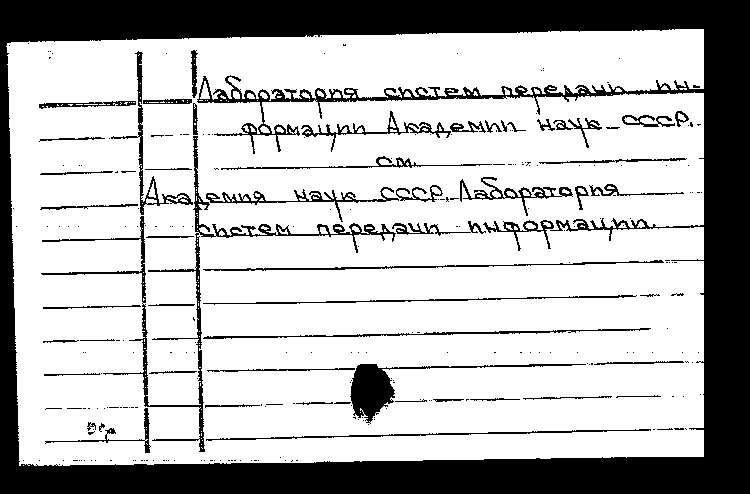 Лаборатория систем передачи ин-
формации Академии наук СССР.
см.
Академия наук СССР. Лаборатория
систем передачи информации.